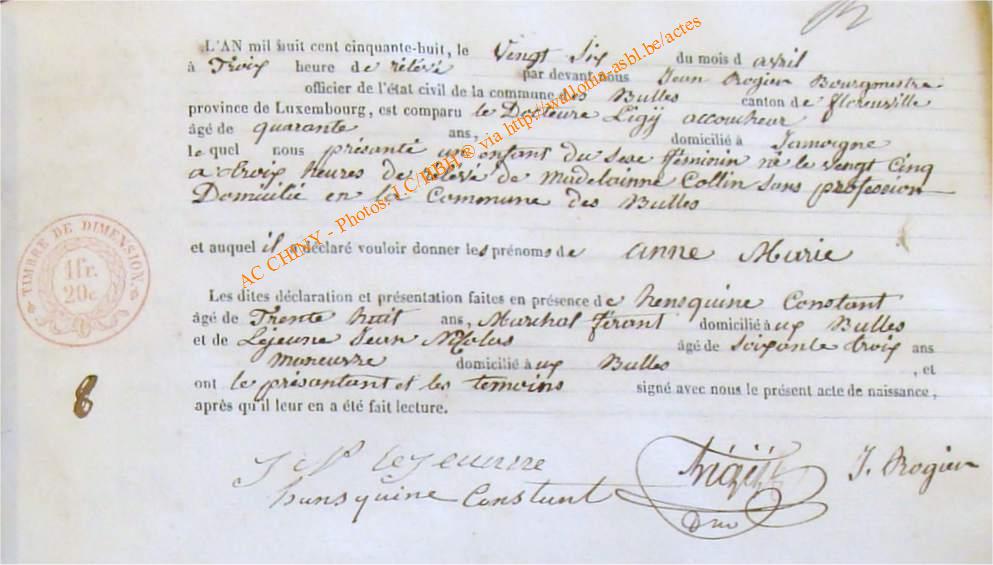 L'AN mil huit cent cinquante-huit, le Vingt Six du mois d avril
à Trois heure de rélévé par devant nous Jean Rogier Bourgmestre
officier de l'état civil de la commune des Bulles canton de florenville
province de Luxembourg, est comparu le Docteure Ligÿ accoucheur
âgé de quarante ans, domicilié à Jamoigne
le quel nous présanté un enfant du sexe féminin né le vingt Cinq
a troix heures de rélévé de madelainne Collin sans profession
Domicilié en la Commune des Bulles
et auquel il a déclaré vouloir donner les prénoms de anne Marie
Les dites déclaration et présentation faites en présence de hensquine Constant
âgé de Trente huit ans, Marchal férant domicilié à ux Bulles
et de Lejeune Jean Nicolas âgé de soixante troix ans
maneuvre domicilié à ux Bulles , et
ont le présantant et les témoins signé avec nous le présent acte de naissance,
après qu'il leur en a été fait lecture.
TIMBRE DE DIMENSION.
1 fr.
20 c
8
lejeunne
hansquine Constant
Ligÿ
J. Rogier
AC CHINY - Photos: J.C/RBH ® via http://wallonia-asbl.be/actes